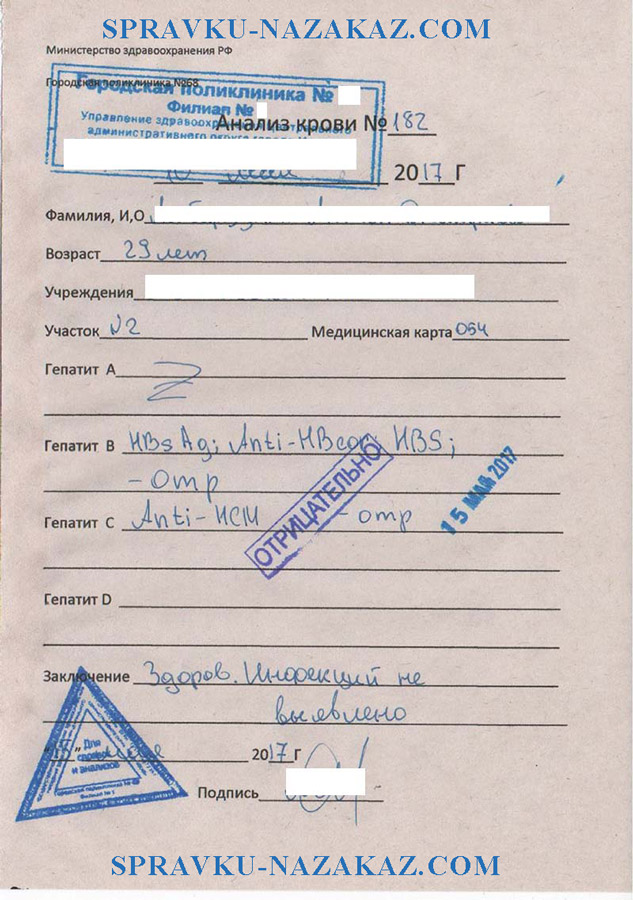 SPRAVKU-NAZAKAZ.COM
Министерство здравоохранения РФ
Городская поликлиника №68
Городская поликлиника №
Филиал №
Управление
административного округа
Анализ крови № 182
10 мая 2017 Г
Фамилия, И,О
Возраст 29 лет
Учреждения
Участок №2 Медицинская карта 054
Гепатит А Z
Гепатит В HBsAg; Anti-HBcor HBS;
- отр
Гепатит С Anti-HCM - отр
ОТРИЦАТЕЛЬНО
15 МАЙ 2017
Гепатит D
Заключение Здоров. Инфекций не
выявлено
Для
справок
и анализов
"15" мая 2017 Г
Подпись
SPRAVKU-NAZAKAZ.COM